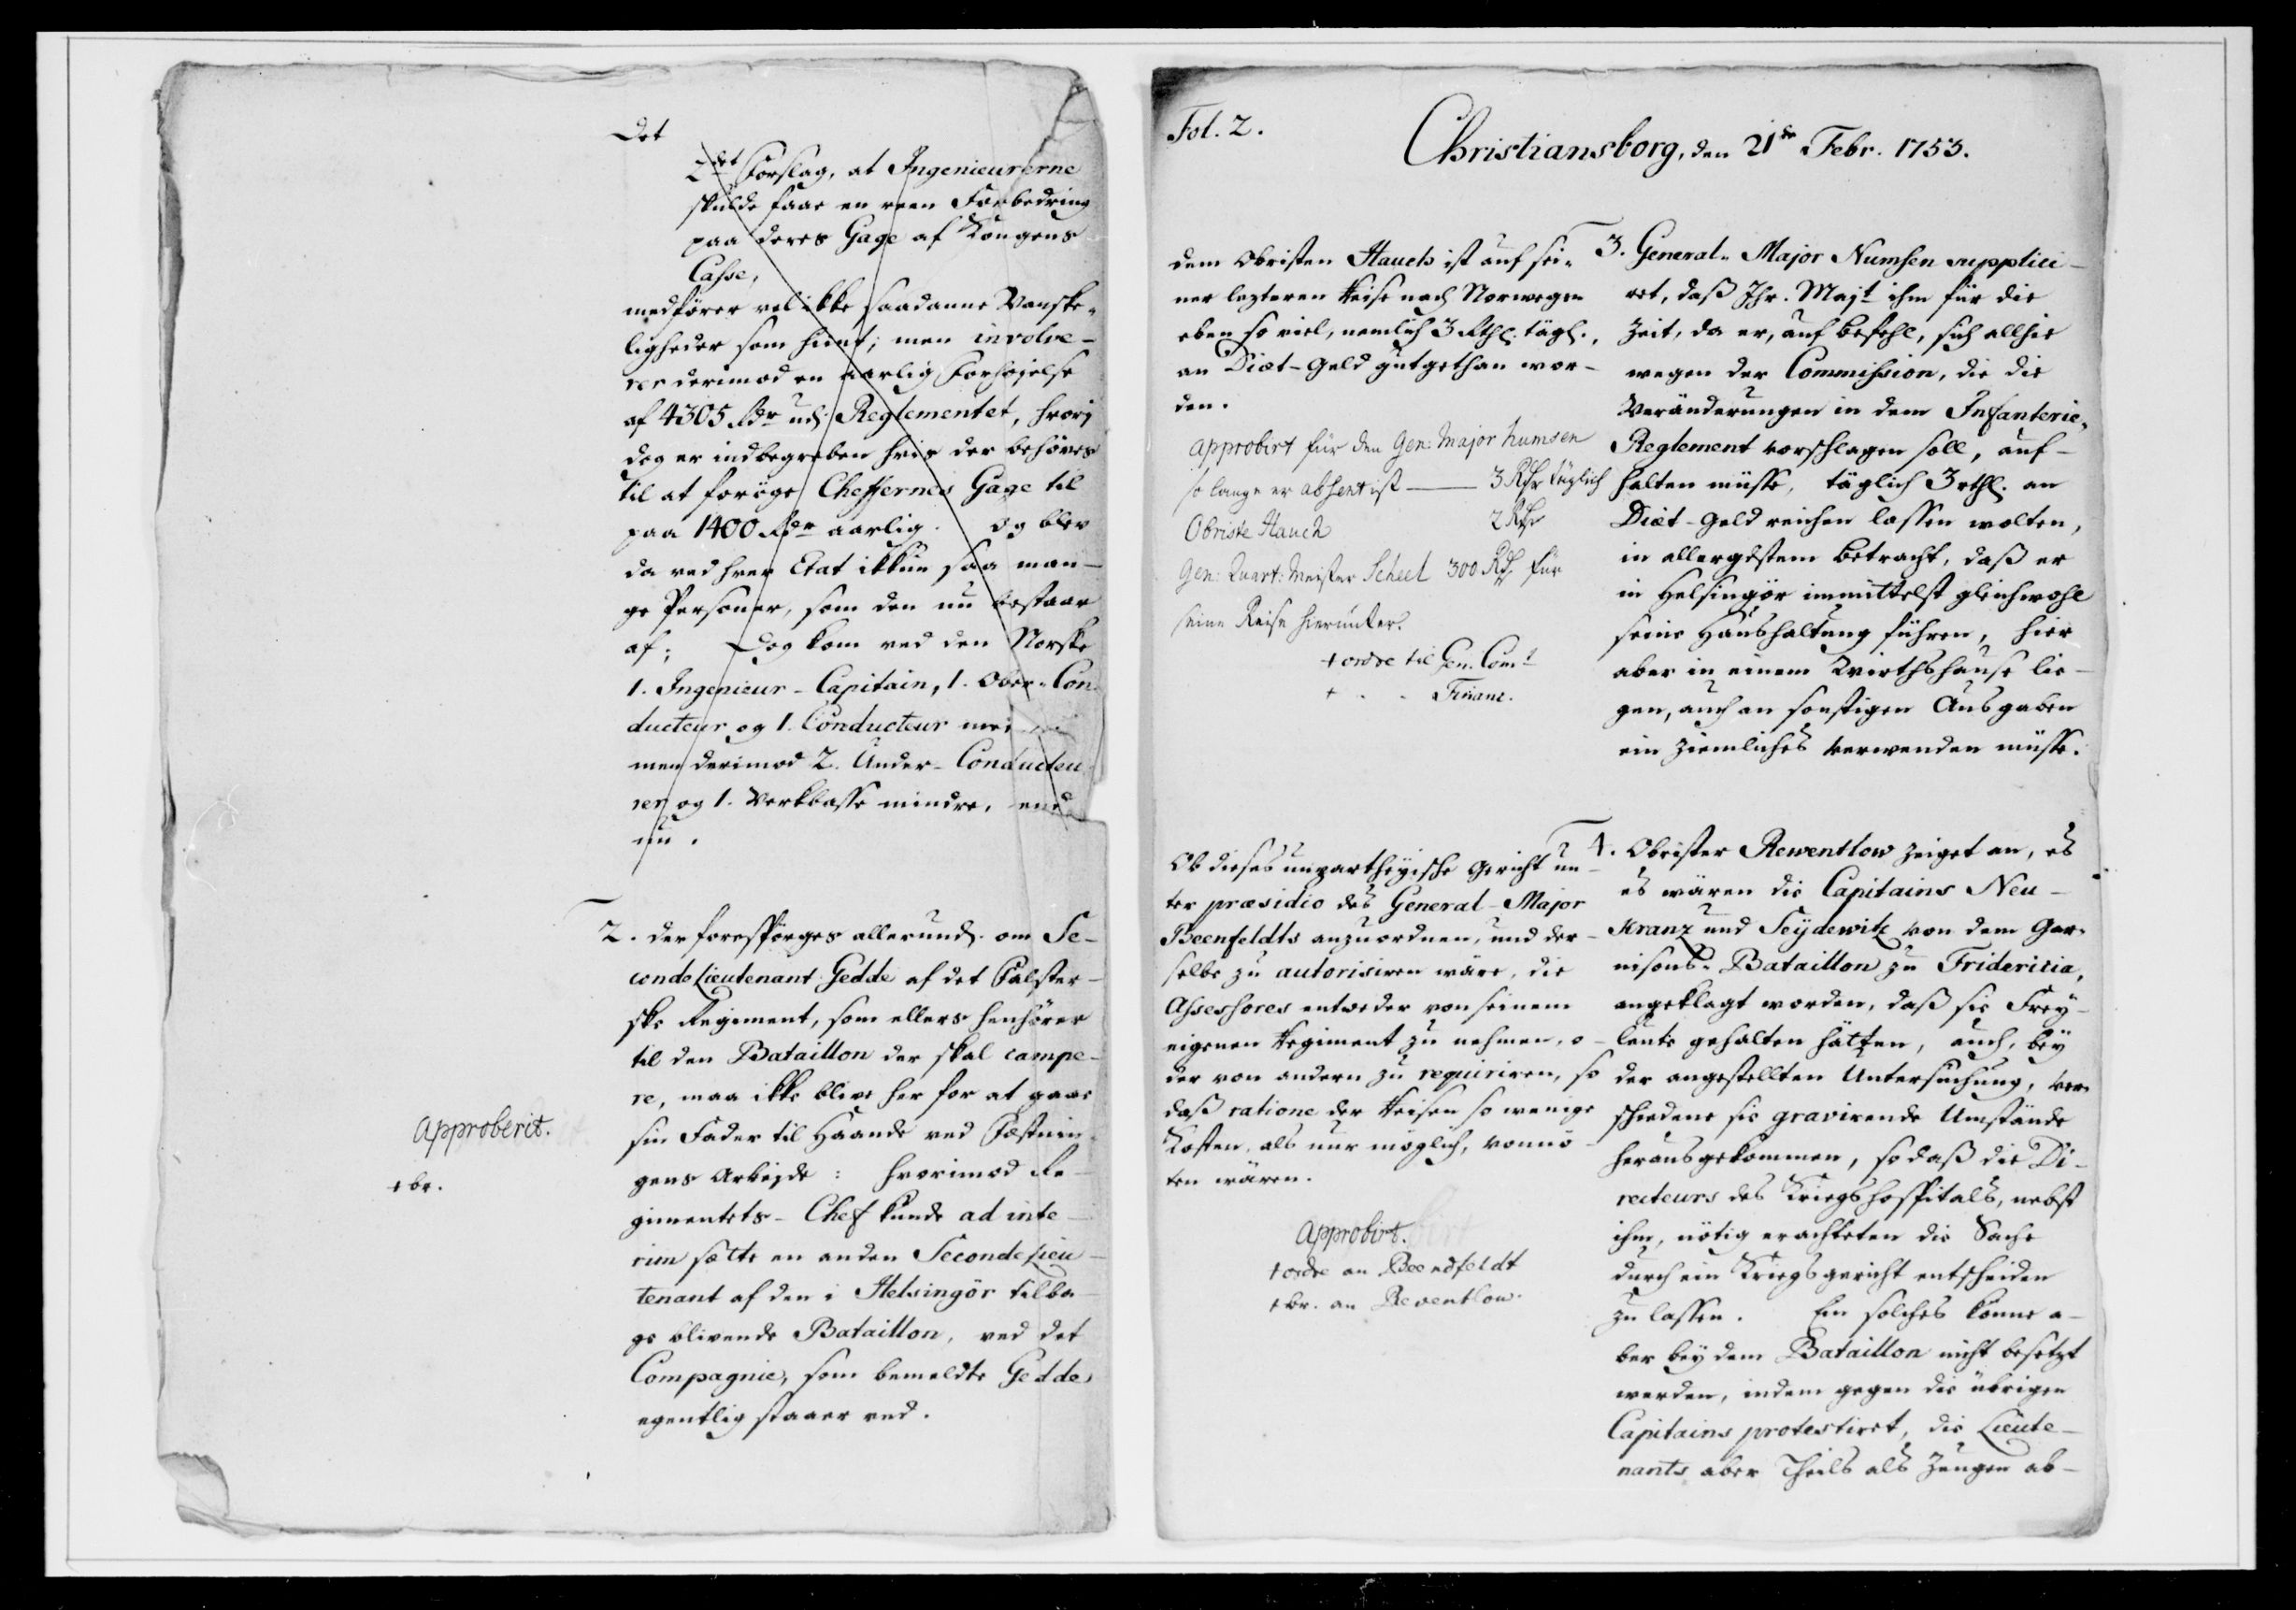 Det
2det Forslag, at Ingenieurerne
skulde faae en reen Forbedring
paa deres Gage af Kongens
Casse,
medfører vel ikke saadanne Vanske-
ligheder som hint; men involve-
rer derimod en aarlig Forhøjelse
af 4305 Rdr udj Reglementet, hvorj
dog er indbegreben hvis der behøves
til at forøge Cheffernes Gage til
paa 1400 Rdr aarlig. Og blev
da ved hver Etat ikkun saa man-
ge Personer, som den nu bestaar
af; Dog kom ved den Norske
1. Ingenieur-Capitain, 1. Ober-Con-
ducteur og 1. Conducteur
men derimod 2. Under-Conducteu-
rer og 1. Verkbasse mindre, end
nu.
2. Der forespørges allerund. om Se-
conde Lieutenant Gedde af det Falster-
ske Regiment, som ellers henhører
til den Bataillon der skal campe-
re, maa ikke blive her for at gaae
sin Fader til Haande ved Festnin-
gens Arbejde: hvorimod Re-
gimentets-Chef kunde ad inte-
rim sette en anden Seconde Lieu-
tenant af den i Helsingör tilba-
ge blivende Bataillon, ved det
Compagnie, som bemeldte Gedde
egentlig staaer ved.
Approberet.
+ br.
Fol. 2.
Christiansborg, den 21de Febr. 1753.
dem Obristen Hauch ist auf sei-
ner lezteren Reise nach Norwegen
eben so viel, nemlich 3 Rthl. tägl.,
an Diæt-Geld gutgethan wor-
den.
Approbirt für den Gen: Major Numsen
so lange er absent ist — 3 Rthr täglich
Obriste Hauch 2 Rthr
Gen: Quart: Meister Scheel 300 Rthr für
seine Reise hierunter.
+ ordre til Gen. Comt
+ - - Finanz.
3. General-Major Numsen supplici-
ret, daß Ihr. Majt ihm für die
Zeit, da er, auf Befehl, sich allhie
wegen der Commission, die die
Veränderungen in dem Infanterie-
Reglement vorschlagen soll, auf-
halten müsse, täglich 3 rthl. an
Diæt-Geld reichen lassen wolten,
in allergdstem Betracht, daß er
in Helsingör immittelst gleichwohl
seine Haushaltung führen, hier
aber in einem Wirthshause lie-
gen, auch an sonstigen Ausgaben
ein ziemliches verwenden müsse.
Ob dieses unpartheyische Gericht un-
ter præsidio des General-Major
Beenfeldts anzuordnen, und der-
selbe zu autorisiren wäre, die
Assessores entweder von seinem
eigenen Regiment zu nehmen, o-
der von andern zu requiriren, so
daß ratione der Reisen so wenige
Kosten, als nur möglich, vonnö-
ten wären.
Approbirt.
+ ordre an Beendfeldt
+ br. an Reventlow.
4. Obrister Rewentlow zeiget an, es
es wären die Capitains Neu-
kranz und Seydewitz von dem Gar-
nisons-Bataillon zu Fridericia,
angeklagt worden, daß sie Frey-
leute gehalten hätten, auch, bey
der angestellten Untersuchung, ver-
schiedene sie gravirende Umstände
herausgekommen, so daß die Di-
recteurs des Kriegshospitals, nebst
ihm, nötig erachteten die Sache
durch ein Kriegsgericht entscheiden
zu lassen. Ein solches könne a-
ber bey dem Bataillon nicht besetzt
werden, indem gegen die übrigen
Capitains protestiret, die Lieute-
nants aber Theils als Zeugen ab-